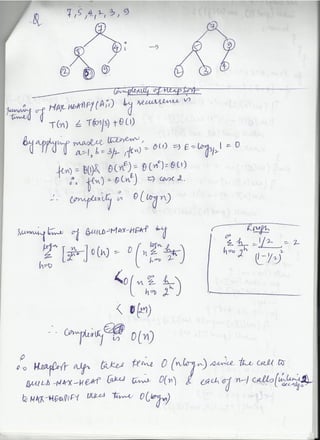 Q 7, 5, 4, 2, 3, 9
7 7
5 4 → 5 9
2 3 2 3 4
Complexity of Heapsort
running time of MAX HEAPIFY(A,i) by recurrence
T(n) ≤ T(2n/3) + Θ(1)
By applying master theorem,
a=1, b=3/2, f(n) = Θ(1) ⇒ E = log 1 = 0
f(n) = Θ(1) & Θ(nᴱ) = Θ(n⁰) = Θ(1)
∴ f(n) = Θ(nᴱ) ⇒ case 2.
∴ complexity is O(log n)
running time of BUILD-MAX-HEAP by
log n Σ h=0 [n/2^h+1] O(h) = O(n log n Σ h=0 h/2^h)
< O(n ∞ Σ h=0 h/2^h)
< O(2n)
∴ Complexity is O(n)
Rough
∞ Σ h=0 h/2^h = 1/2 / (1-1/2)² = 2
∴ Heapsort algo takes time O(n log n) since the call to
BUILD-MAX-HEAP takes time O(n) & each of n-1 calls
to MAX-HEAPIFY takes time O(log n)